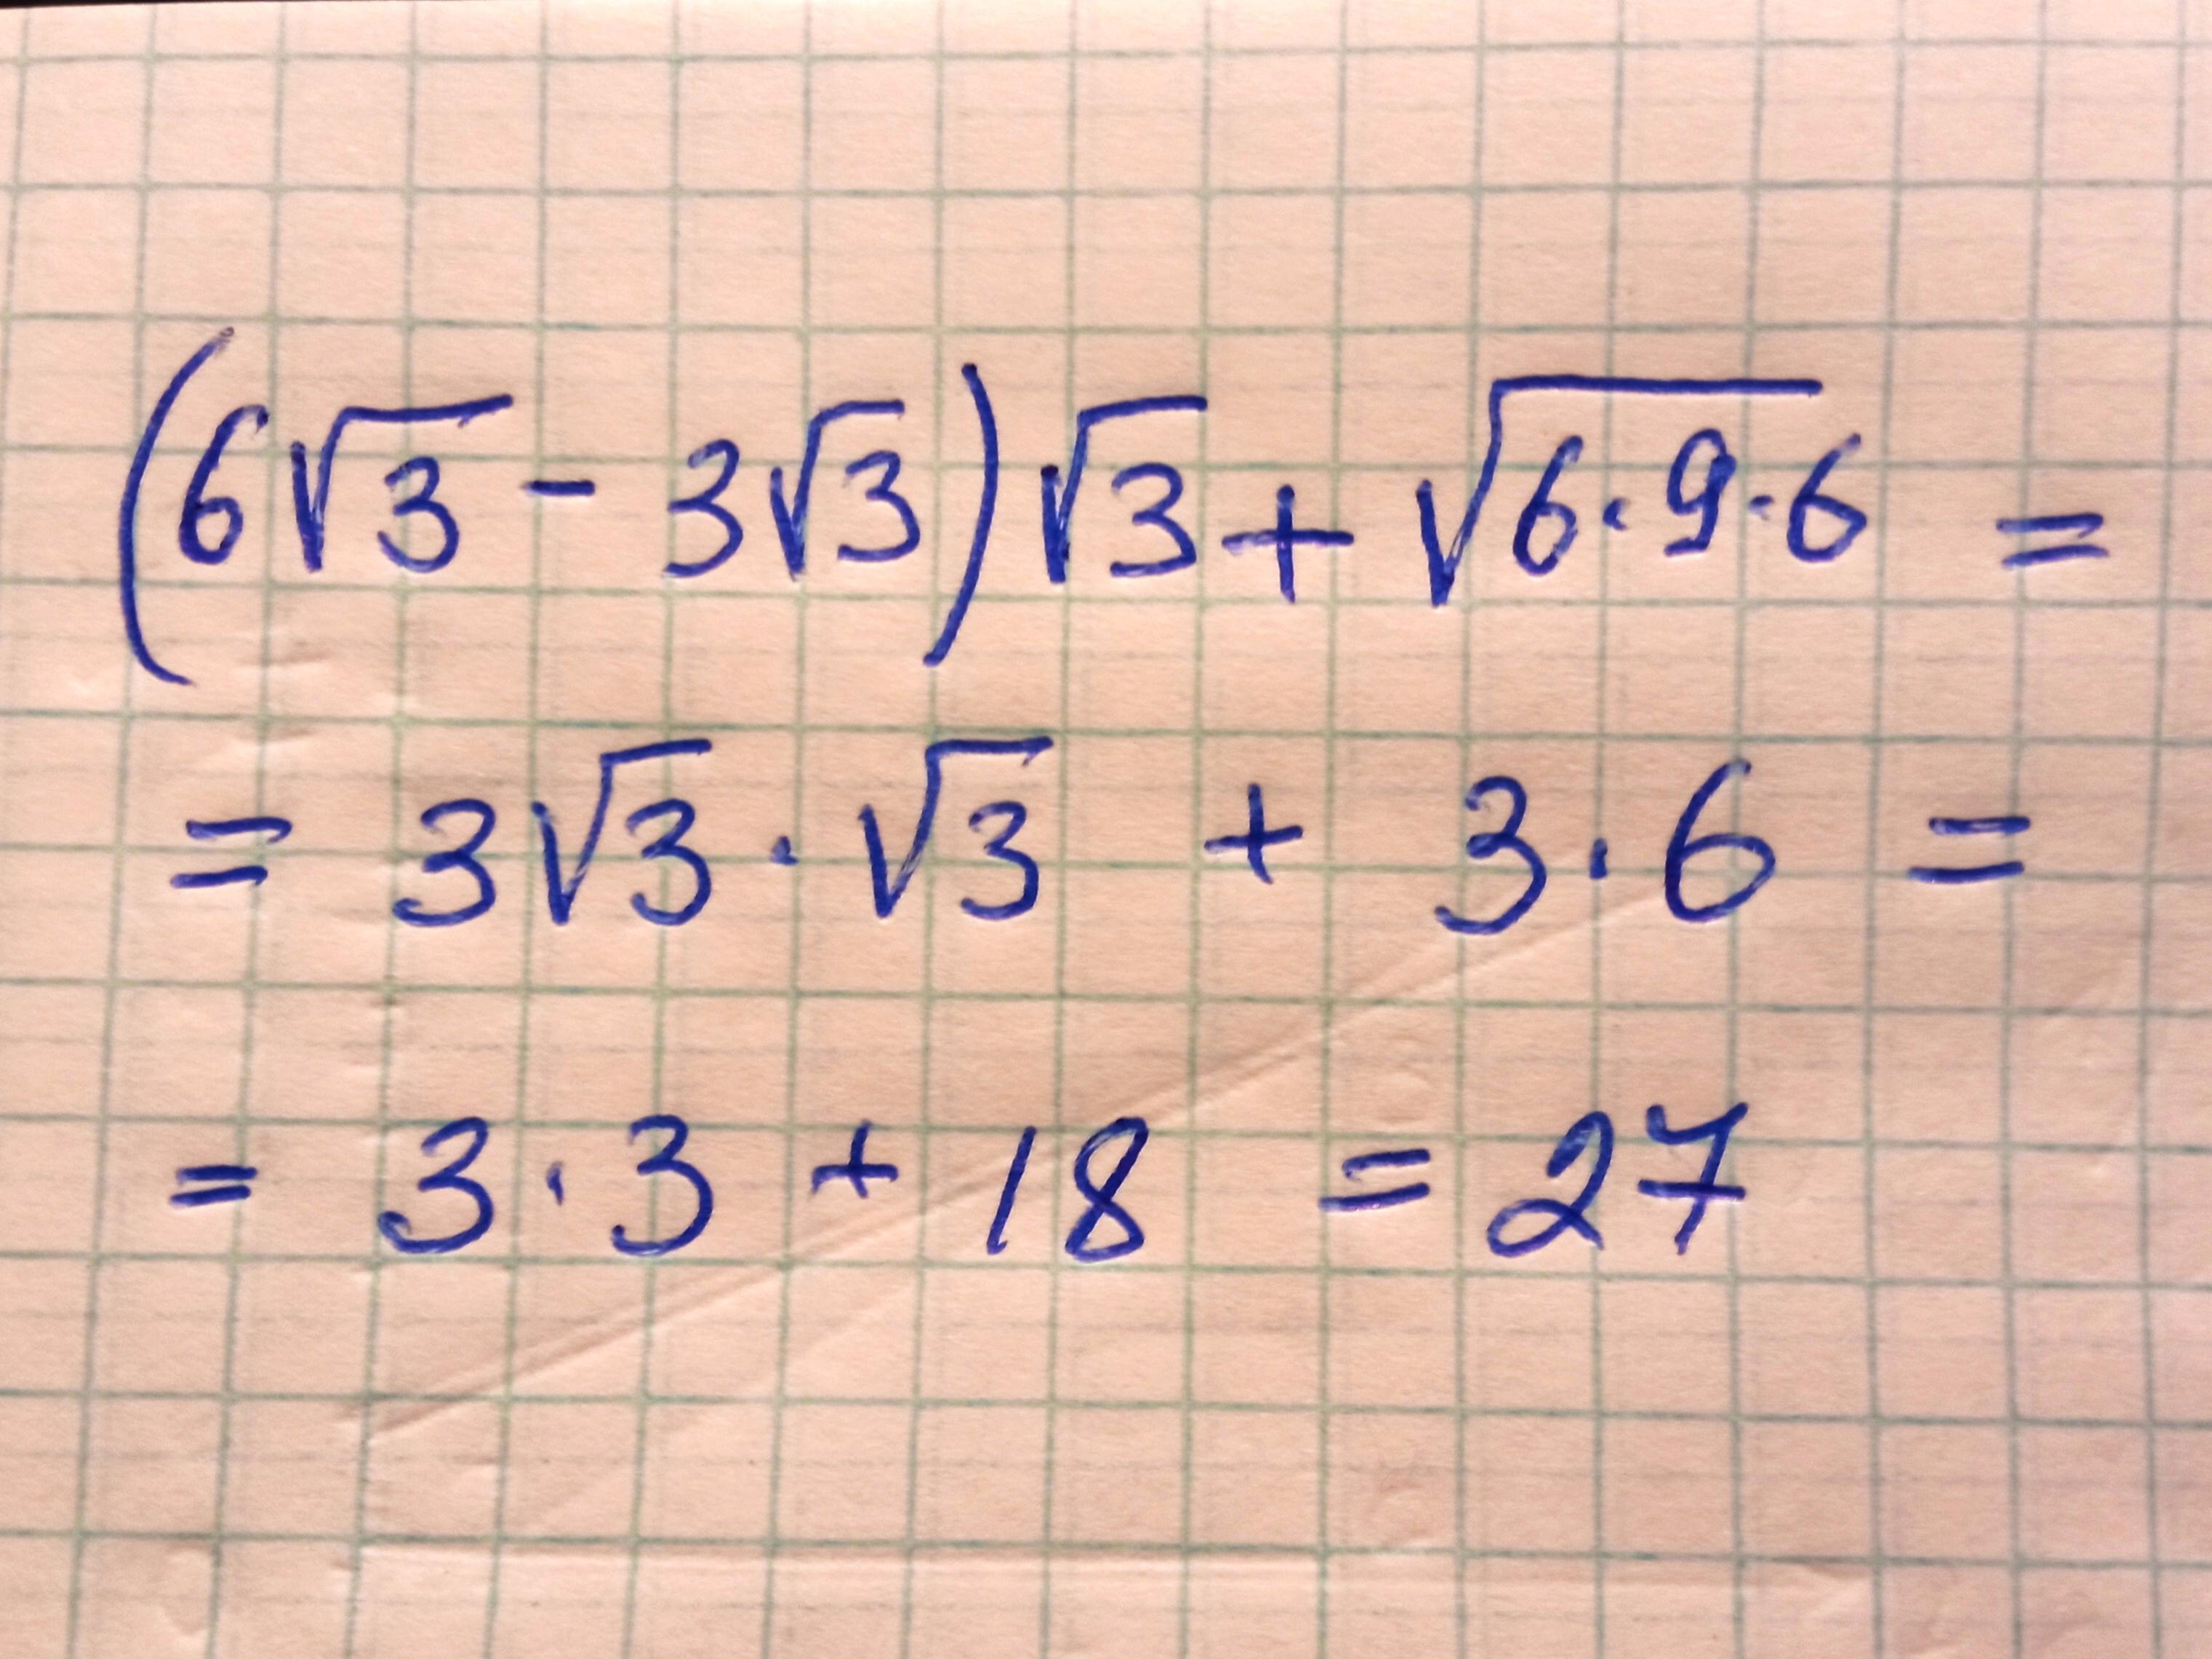 (6√3 - 3√3)√3 + √(6·9·6) =
= 3√3 · √3 + 3·6 =
= 3·3 + 18 = 27